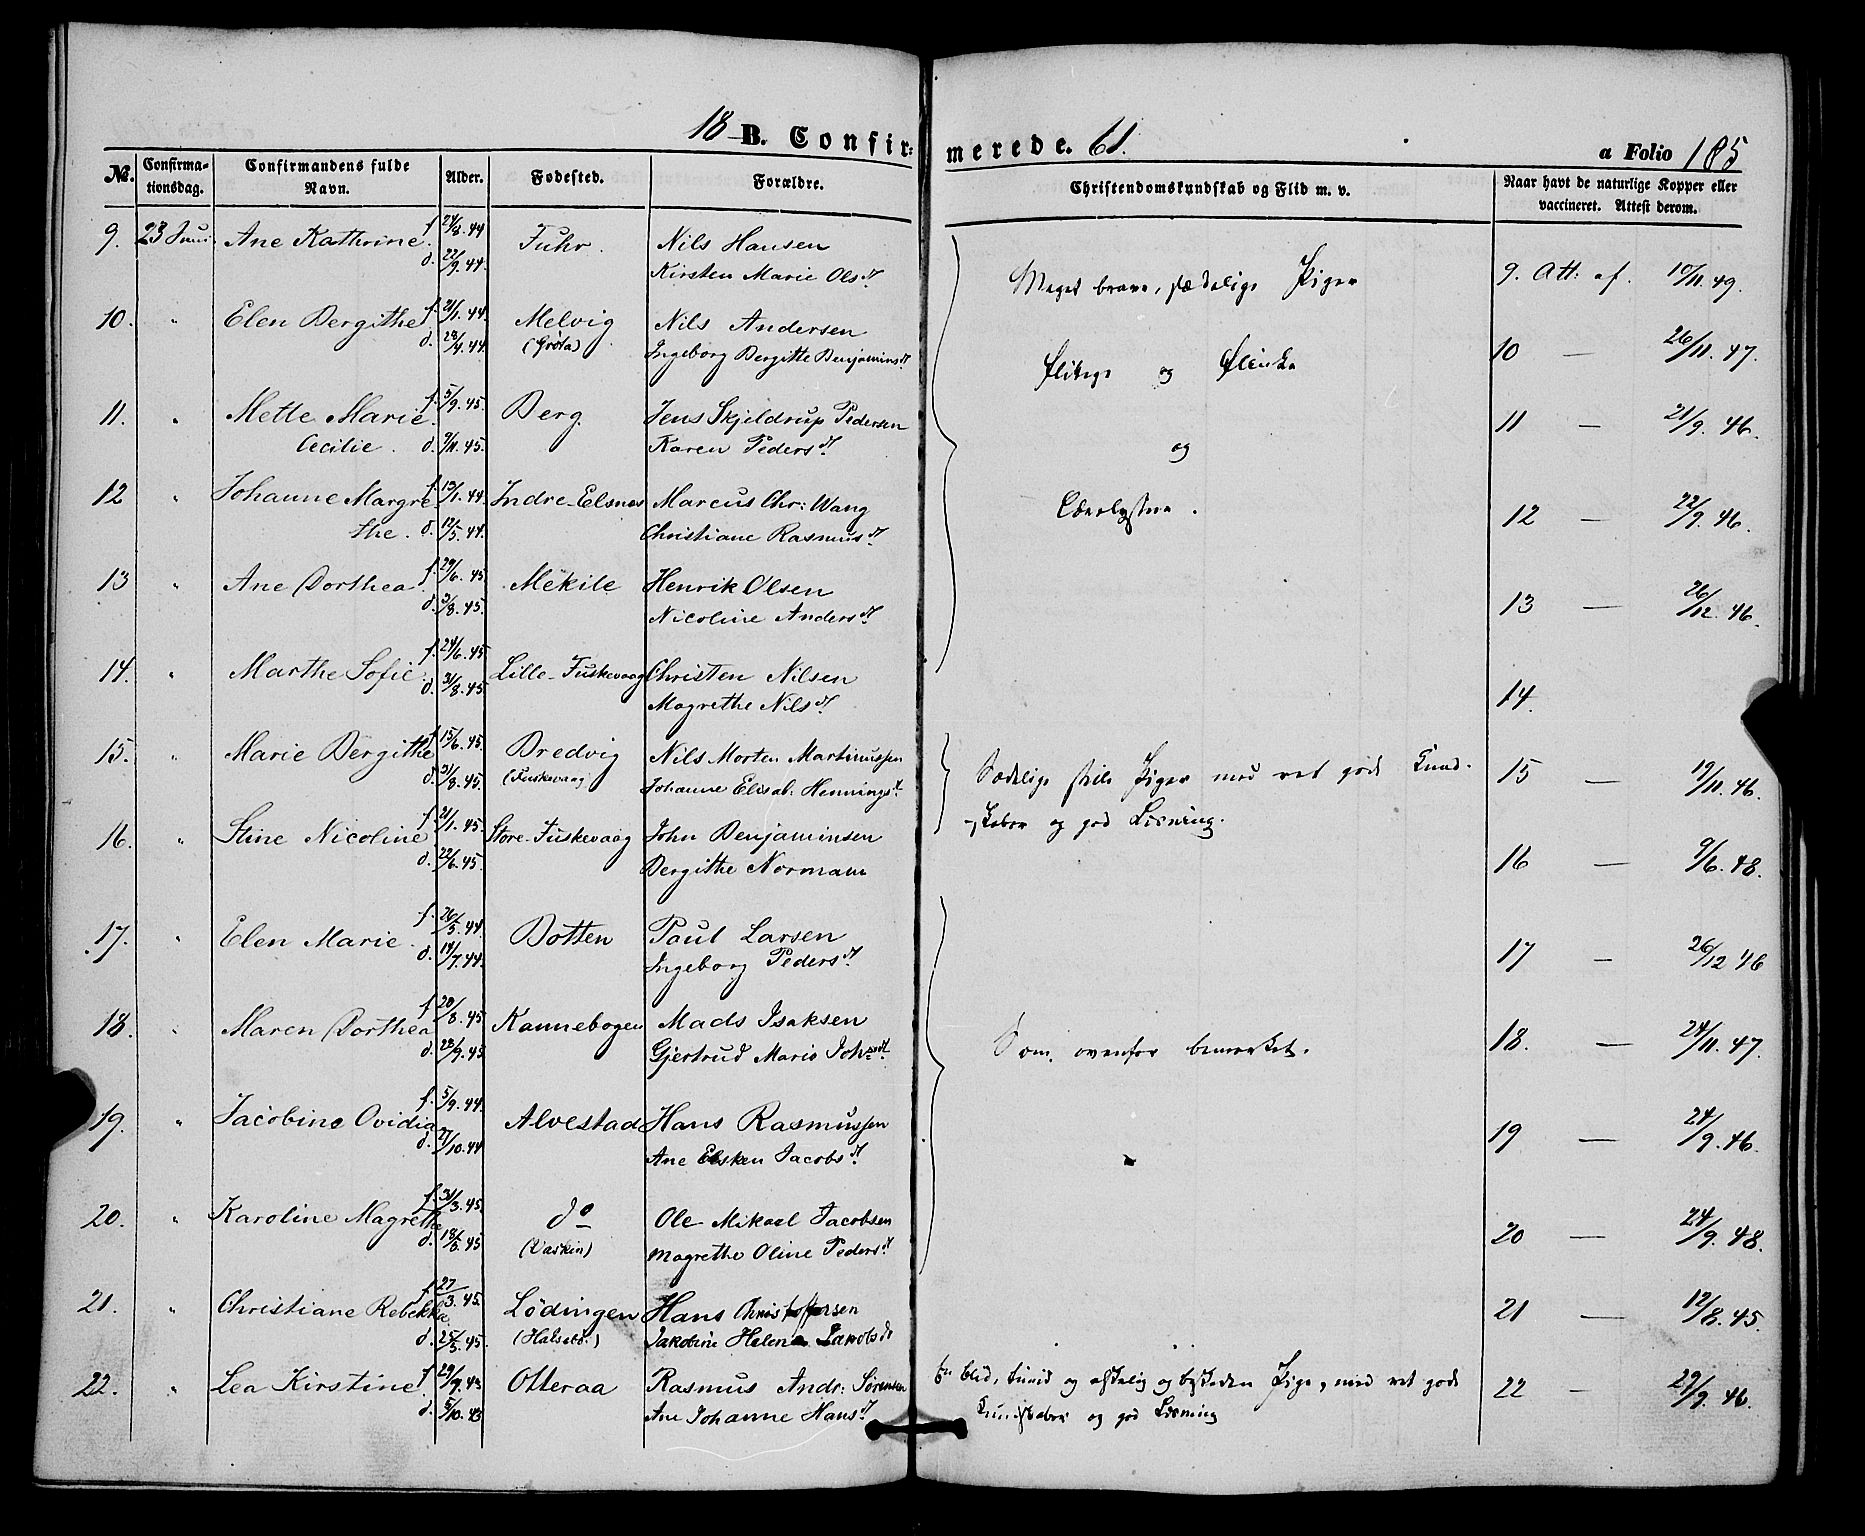 18 B. Confir: merede. 61. a Folio 185
No. Confirma- tionsdag. Confirmandens fulde Navn. Alder. Fødested. Forældre. Christendomskundskab og Flid m. v. Naar havt de naturlige Kopper eller vaccineret. Attest derom.
9. 23 Juni. Ane Kathrine f. 24/8.44 Fuhr. Nils Hansen
d. 22/9.44. Kirsten Marie Olsdt. 9. Att: af. 10/11.49.
Meget brave, sædelige Piger
10. " Elen Bergithe f. 21/1.44. Melvig Nils Andersen
d. 28/4.44. (Grøta) Ingeborg Bergitte Benjaminsdt. 10 — 26/11.47.
flitige og flinke
11. " Mette Marie f. 5/9.45. Berg. Jens Skjeldrup Pedersen 11 — 21/9.46.
Cecilie. d. 9/11.45. Karen Pedersdt. og
12 " Johanne Margre- f. 13/1.44. Indre-Elsnes Marcus Chr: Wang
the. d. 12/5.44. Christiane Rasmusdt. 12 — 22/9.46.
Lærelystne.
13 " Ane Dorthea f. 29/6.45. Mekile Henrik Olsen
d. 3/8.45. Nicoline Andersdt. 13 — 26/12.46.
14. " Marthe Sofie f. 24/6.45. Lille-Fuskevaag Christen Nilsen
d. 31/8.45. Magrethe Nilsdt. 14.
15. " Marie Bergithe f. 15/6.45. Bredvig Nils Morten Martinussen
d. 31/8.45. (Fuskevaag) Johanne Elisab: Henningsdt. 15 — 19/11.46.
Sædelige stille Piger med ret gode Kund-
skaber og god Læsning.
16. " Stine Nicoline f. 21/1.45. Store-Fuskevaag John Benjaminsen
d. 22/6.45. Bergithe Normann 16 — 9/6.48.
17. " Elen Marie. f. 26/5.44. Botten Paul Larsen
d. 14/7.44. Ingeborg Pedersdt. 17 — 26/12 46
18. " Maren Dorthea f. 20/8.45 Kannebogen Mads Isaksen
d. 28/9.45 Gjertrud Marie Johansdt. 18. — 24/11.47.
Som ovenfor bemærket.
19. " Jacobine Ovidia f. 5/9.44. Alvestad Hans Rasmussen
d. 27/10.44 Ane Elsken Jacobsdt. 19 — 24/9.46.
20. " Karoline Magrethe f. 31/3.45. do Ole Mikael Jacobsen
d. 18/5.45 (Vaskin) Magrethe Oline Pedersdt. 20 — 24/9.48.
21. " Christiane Rebekka f. 27/3.45. Lödingen Hans Christoffersen
d. 25/5.45. Jakobine Helena Jakobsdt 21 — 12/8.45.
22. " Lea Kirstine f. 29/9.43 Otteraa Rasmus Andr: Sörensen
d. 5/10.43 Ane Johanne Hansdt. 22 — 29/9.46.
En blid, og og Pige, med ret gode
Kundskaber og god Læsning